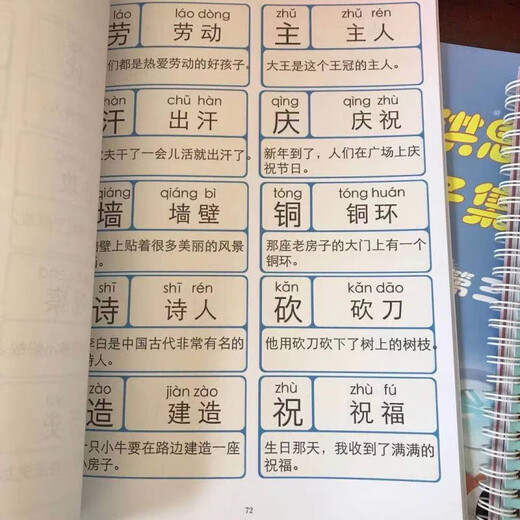 láo láo dòng
劳 劳动
们都是热爱劳动的好孩子。
zhǔ zhǔ rén
主 主人
大王是这个王冠的主人。
hàn chū hàn
汗 出汗
夫干了一会儿活就出汗了。
qìng qìng zhù
庆 庆祝
新年到了，人们在广场上庆
祝节日。
qiáng qiáng bì
墙 墙壁
壁上贴着很多美丽的风景
tóng tóng huán
铜 铜环
那座老房子的大门上有一个
铜环。
shī shī rén
诗 诗人
李白是中国古代非常有名的
诗人。
kǎn kǎn dāo
砍 砍刀
他用砍刀砍下了树上的树枝。
zào jiàn zào
造 建造
只小牛要在路边建造一座
小房子。
zhù zhù fú
祝 祝福
生日那天，我收到了满满的
祝福。
72